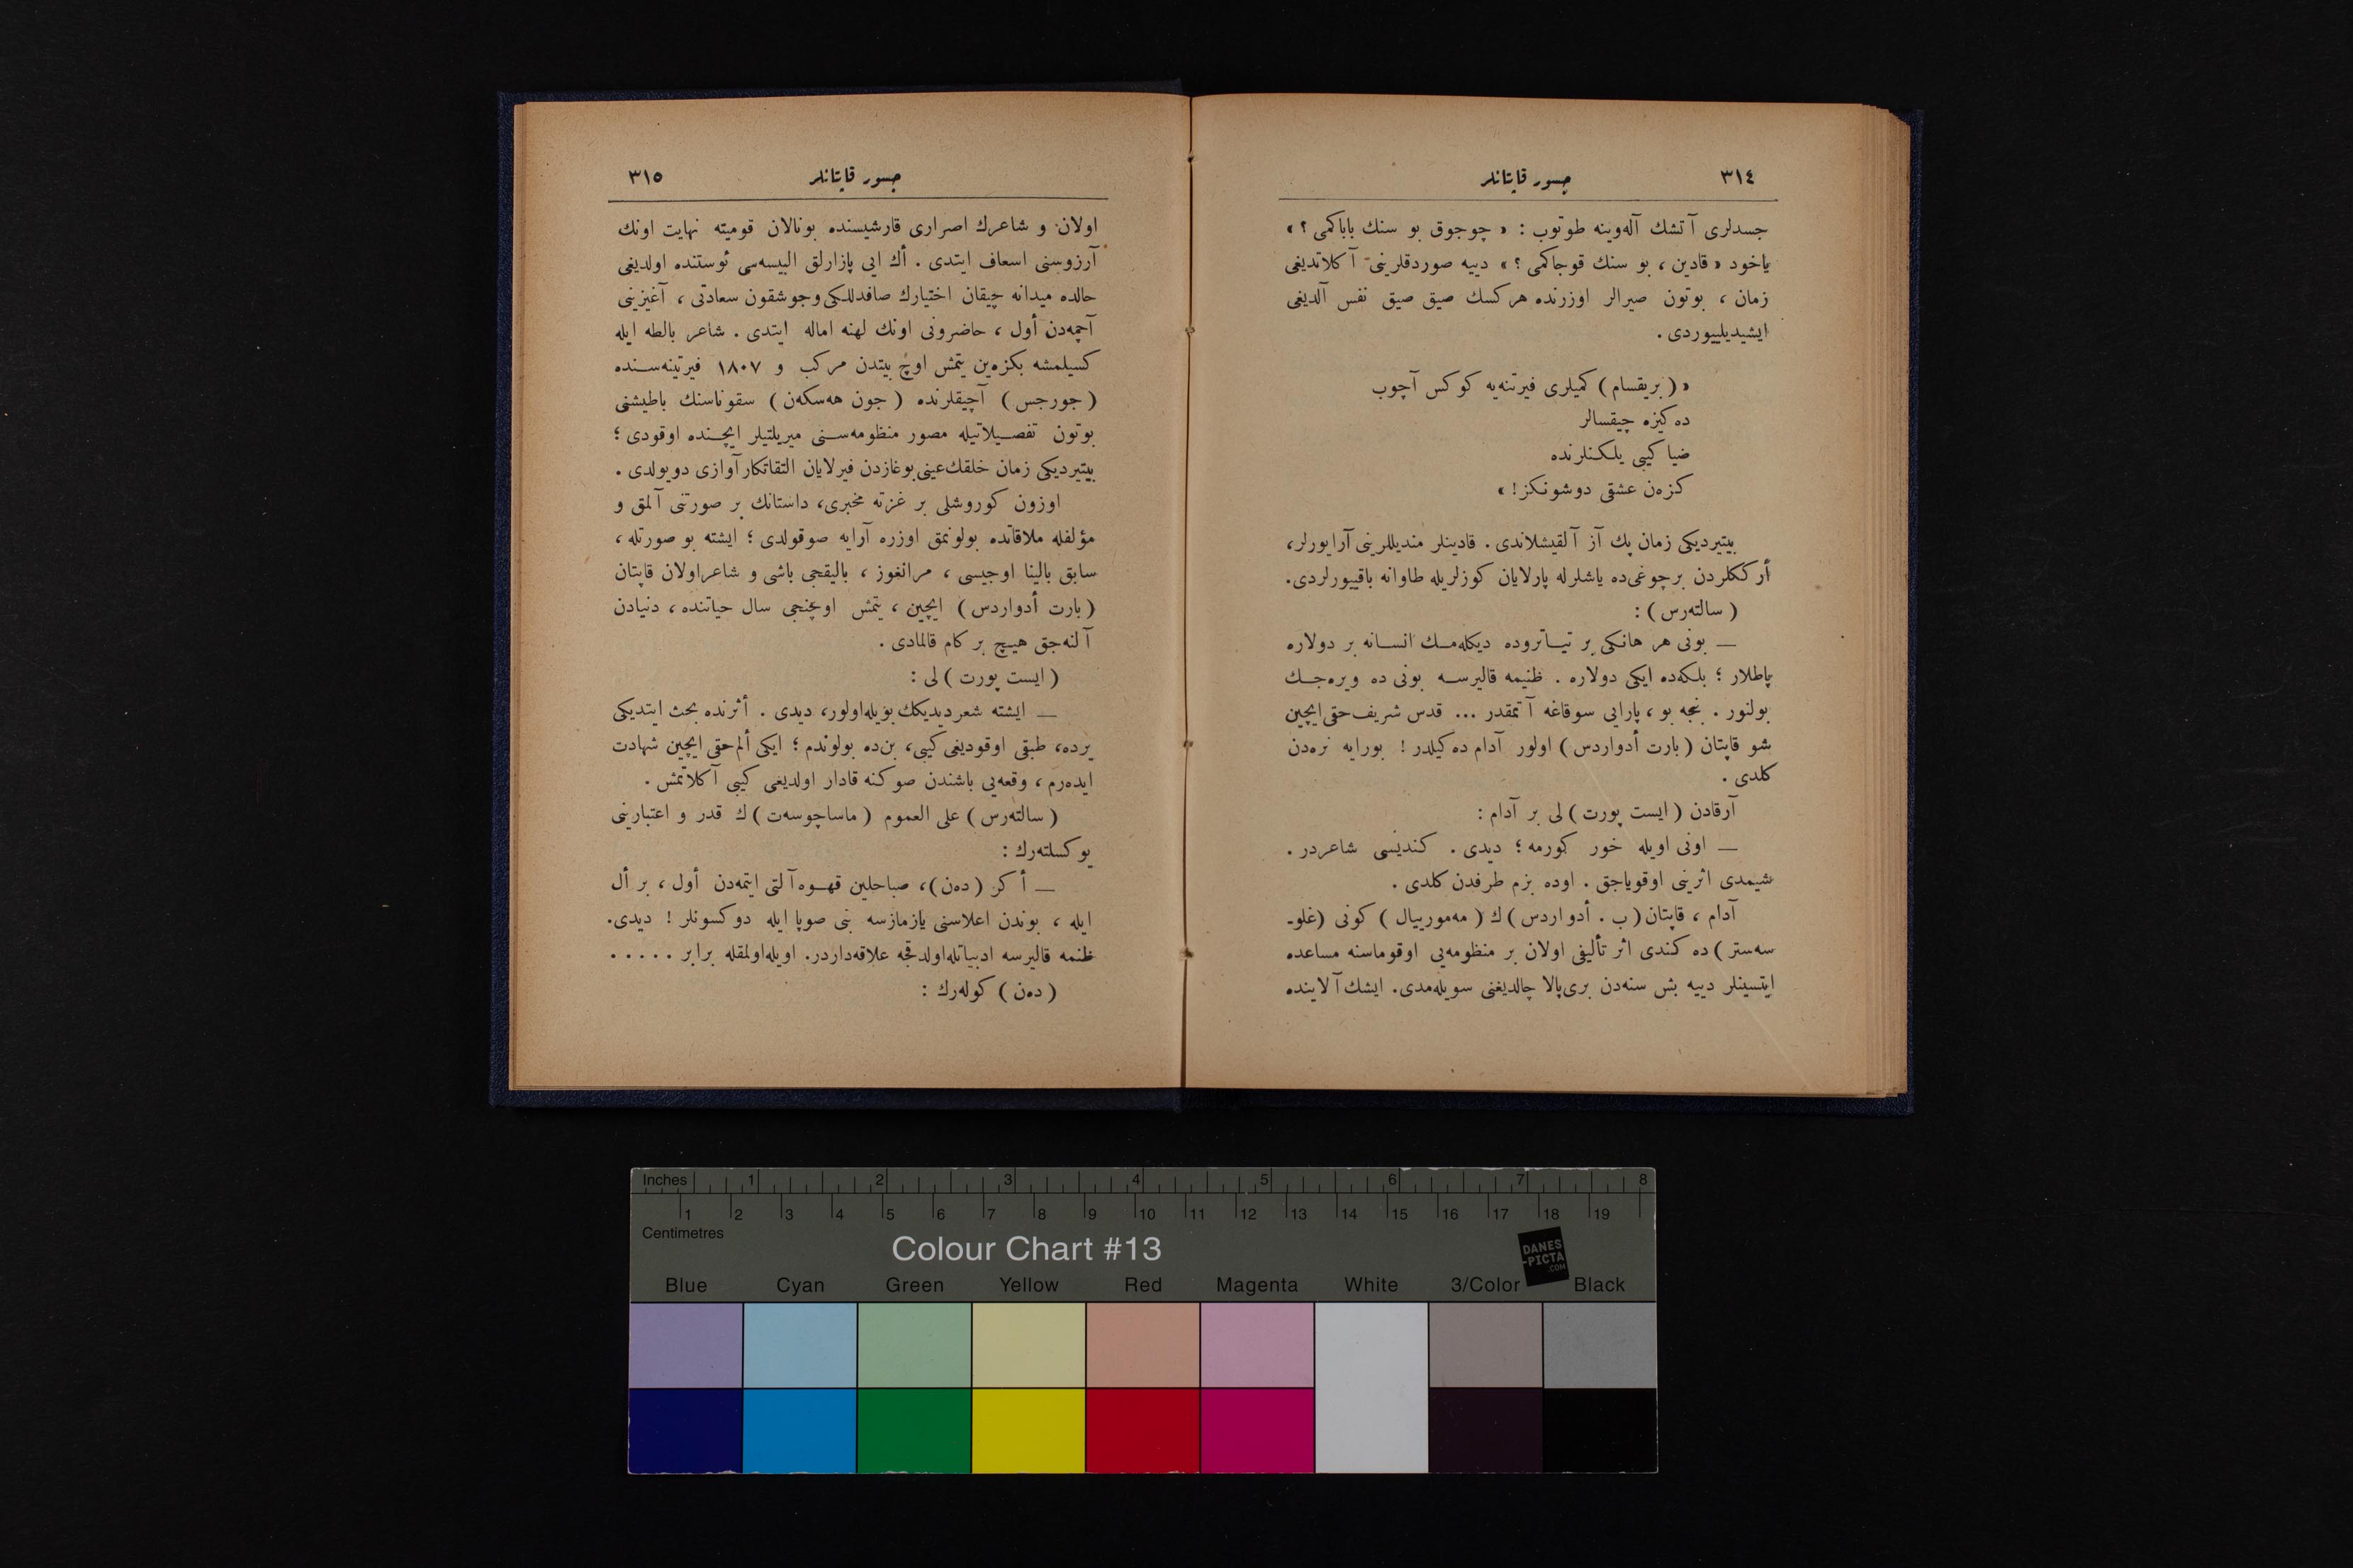 ٣١٤
جسور قاپتانلر
جسدلری آتشك آلەوینه طوتوب : « چوجوق بو سنك باباكمی ؟ »
یاخود « قادین ، بو سنك قوجاكمی ؟ » دییه صوردقلرینی آكلاتدیغی
زمان ، بوتون صیرالر اوزرنده هركسك صیق صیق نفس آلدیغی
ایشیدیلییوردی .
« ( بریقسام ) كمیلری فیرتنه‌یه كوكس آچوب
ده‌كیزه چیقسالر
ضیا كیبی یلكنلرنده
كزه‌ن عشقی دوشونكز ! »
بیتیردیكی زمان پك آز آلقیشلاندی . قادینلر مندیللرینی آرایورلر،
أرككلردن برچوغی‌ده یاشلرله پارلایان كوزلریله طاوانه باقییورلردی.
( سالته‌رس ) :
— بونی هر هانكی بر تیاتروده دیكله‌مك انسانه بر دولاره
پاطلار ؛ بلكه‌ده ایكی دولاره . ظنیمه قالیرسه بونی ده ویره‌جك
بولنور . بنجه بو ، پارایی سوقاغه آتمقدر ... قدس شریف حقی ایچین
شو قاپتان ( بارت أدواردس ) اولور آدام ده‌كیلدر ! بورایه نره‌دن
كلدی .
آرقادن ( ایست پورت ) لی بر آدام :
— اونی اویله خور كورمه ؛ دیدی . كندیسی شاعردر .
شیمدی اثرینی اوقویاجق . اوده بزم طرفدن كلدی .
آدام ، قاپتان ( ب . أدواردس ) ك ( مه‌موریيال ) كونی ( غلو-
سه‌ستر ) ده كندی اثر تألیفی اولان بر منظومه‌یی اوقوماسنه مساعده
ایتسینلر دییه بش سنه‌دن بری پالا چالدیغنی سویله‌مدی. ایشك آلاینده
٣١٥
جسور قاپتانلر
اولان و شاعرك اصراری قارشیسنده بونالان قومیته نهایت اونك
آرزوسنی اسعاف ایتدی . أك ایی پازارلق البیسه‌سی ئوستنده اولدیغی
حالده میدانه چیقان اختیارك صافدللكی وجوشقون سعادتی ، آغیزینی
آچمه‌دن أول ، حاضرونی اونك لهنه اماله ایتدی . شاعر بالطه ایله
كسیلمشه بكزه‌ین یتمش اوچ بیتدن مركب و ١٨٠٧ فیرتینه‌سنده
( جورجس ) آچیقلرنده ( جون هه‌سكه‌ن ) سقوناسنك باطیشنی
بوتون تفصیلاتیله مصور منظومه‌سنی میریلتیلر ایچنده اوقودی ؛
بیتیردیكی زمان خلقك عینی بوغازدن فیرلایان التفاتكار آوازی دویولدی .
اوزون كوروشلی بر غزته مخبری، داستانك بر صورتنی آلمق و
مؤلفله ملاقاتده بولونمق اوزره آرایه صوقولدی ؛ ایشته بو صورتله ،
سابق بالینا اوجیسی ، مرانغوز ، بالیقجی باشی و شاعر اولان قاپتان
( بارت أدواردس ) ایچین ، یتمش اوچنجی سال حیاتنده ، دنیادن
آلنه‌جق هیچ بر كام قالمادی .
( ایست پورت ) لی :
— ایشته شعر دیدیكك بویله اولور، دیدی . أثرنده بحث ایتدیكی
یرده، طبقی اوقودیغی كیبی، بن‌ده بولوندم ؛ ایكی ألم حقی ایچین شهادت
ایده‌رم ، وقعه‌یی باشندن صوكنه قادار اولدیغی كیبی آكلاتمش .
( سالته‌رس ) علی العموم ( ماساچوسه‌ت ) ك قدر و اعتبارینی
یوكسلته‌رك :
— أكر ( ده‌ن ) ، صباحلین قهوه آلتی ایتمه‌دن أول ، بر أل
ایله ، بوندن اعلاسنی یازمازسه بنی صوپا ایله دوكسونلر ! دیدی.
ظنمه قالیرسه ادبیاتله اولدقجه علاقه‌داردر. اویله اولمقله برابر . . . . .
( ده‌ن ) كوله‌رك :
Inches 1 2 3 4 5 6 7 8
1 2 3 4 5 6 7 8 9 10 11 12 13 14 15 16 17 18 19
Centimetres
Colour Chart #13
DANES
-PICTA
.COM
Blue Cyan Green Yellow Red Magenta White 3/Color Black